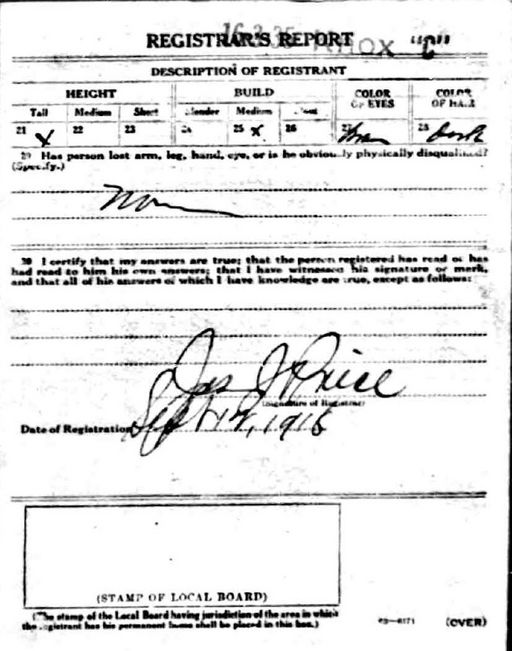 16-3-35 Knox "C"
REGISTRAR'S REPORT
DESCRIPTION OF REGISTRANT
HEIGHT BUILD COLOR OF EYES COLOR OF HAIR
Tall Medium Short Slender Medium Stout
21 X 22 23 24 25 X 26 27 28 Dark
29 Has person lost arm, leg, hand, eye, or is he obviously physically disqualified?
(Specify.)
30 I certify that my answers are true; that the person registered has read or has
had read to him his own answers; that I have witnessed his signature or mark,
and that all of his answers of which I have knowledge are true, except as follows:
Jas Price
(Signature of Registrar)
Date of Registration Sept 12, 1918
(STAMP OF LOCAL BOARD)
(The stamp of the Local Board having jurisdiction of the area in which
the registrant has his permanent home shall be placed in this box.)
03—6171 (OVER)